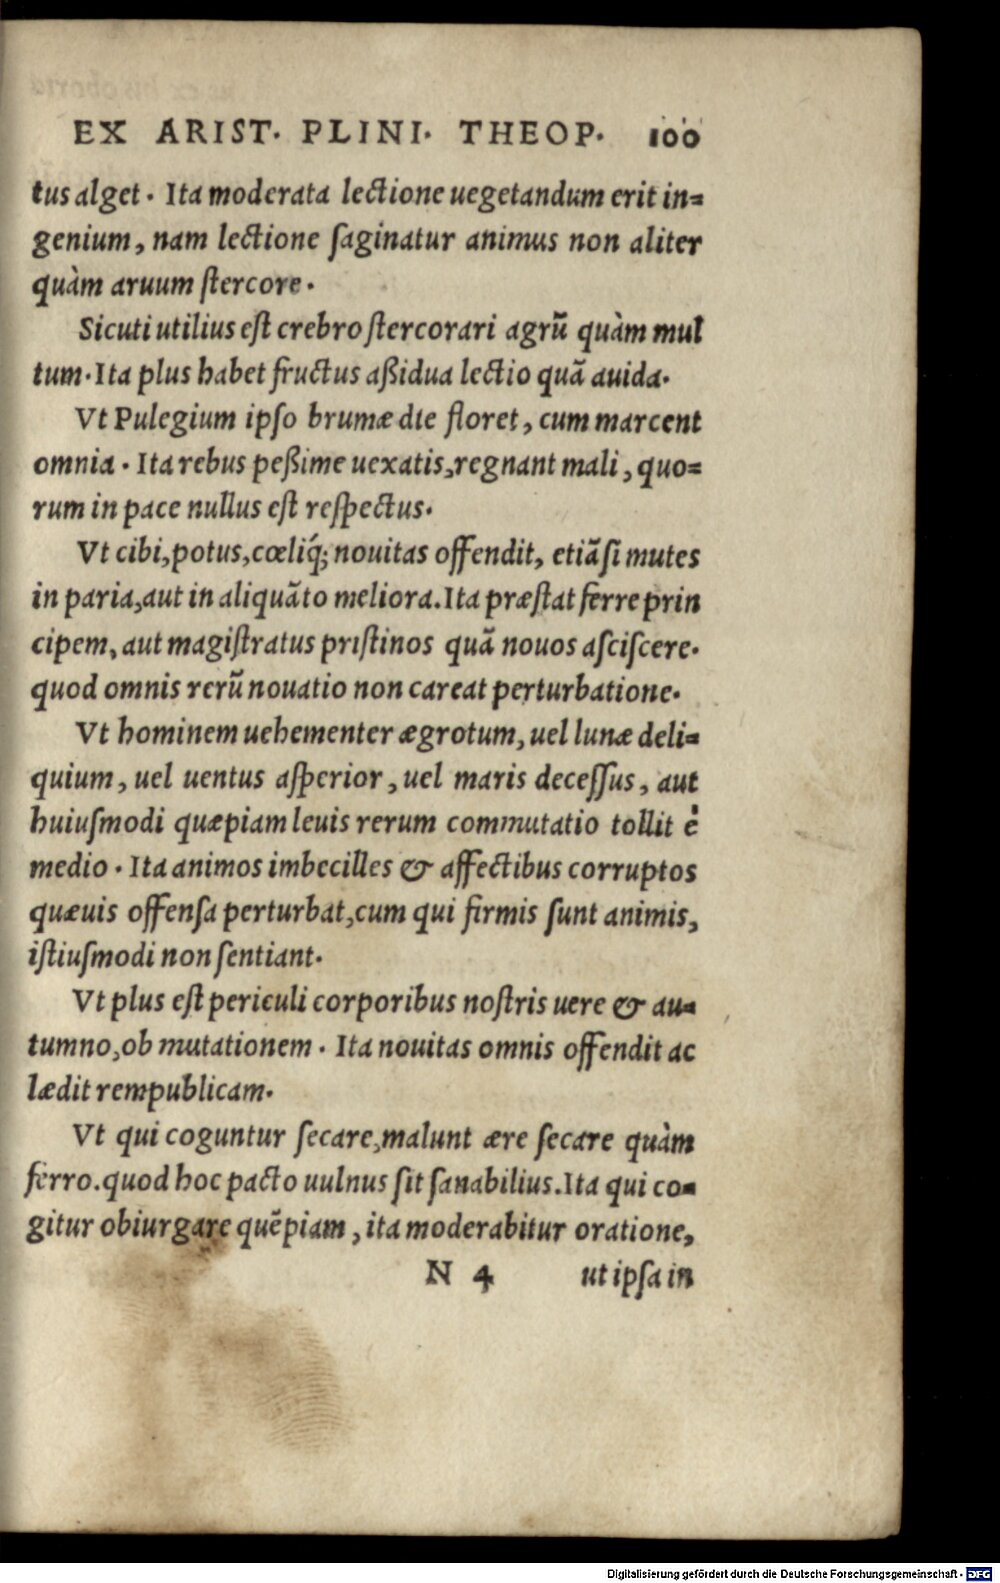 EX ARIST. PLINI. THEOP. 100
tus alget. Ita moderata lectione uegetandum erit in=
genium, nam lectione ſaginatur animus non aliter
quàm aruum ſtercore.
Sicuti utilius eſt crebro ſtercorari agrũ quàm mul
tum. Ita plus habet fructus aßidua lectio quã auida.
Vt Pulegium ipſo brumæ die floret, cum marcent
omnia. Ita rebus peßime uexatis, regnant mali, quo=
rum in pace nullus eſt reſpectus.
Vt cibi, potus, cœliq́; nouitas offendit, etiã ſi mutes
in paria, aut in aliquãto meliora. Ita præſtat ferre prin
cipem, aut magiſtratus priſtinos quã nouos aſciſcere.
quod omnis rerũ nouatio non careat perturbatione.
Vt hominem uehementer ægrotum, uel lunæ deli=
quium, uel uentus aſperior, uel maris deceſſus, aut
huiuſmodi quæpiam leuis rerum commutatio tollit è
medio. Ita animos imbecilles & affectibus corruptos
quæuis offenſa perturbat, cum qui firmis ſunt animis,
iſtiuſmodi non ſentiant.
Vt plus eſt periculi corporibus noſtris uere & au=
tumno, ob mutationem. Ita nouitas omnis offendit ac
lædit rempublicam.
Vt qui coguntur ſecare, malunt ære ſecare quàm
ferro. quod hoc pacto uulnus ſit ſanabilius. Ita qui co=
gitur obiurgare quẽpiam, ita moderabitur oratione,
N 4 ut ipſa in
Digitalisierung gefördert durch die Deutsche Forschungsgemeinschaft - DFG